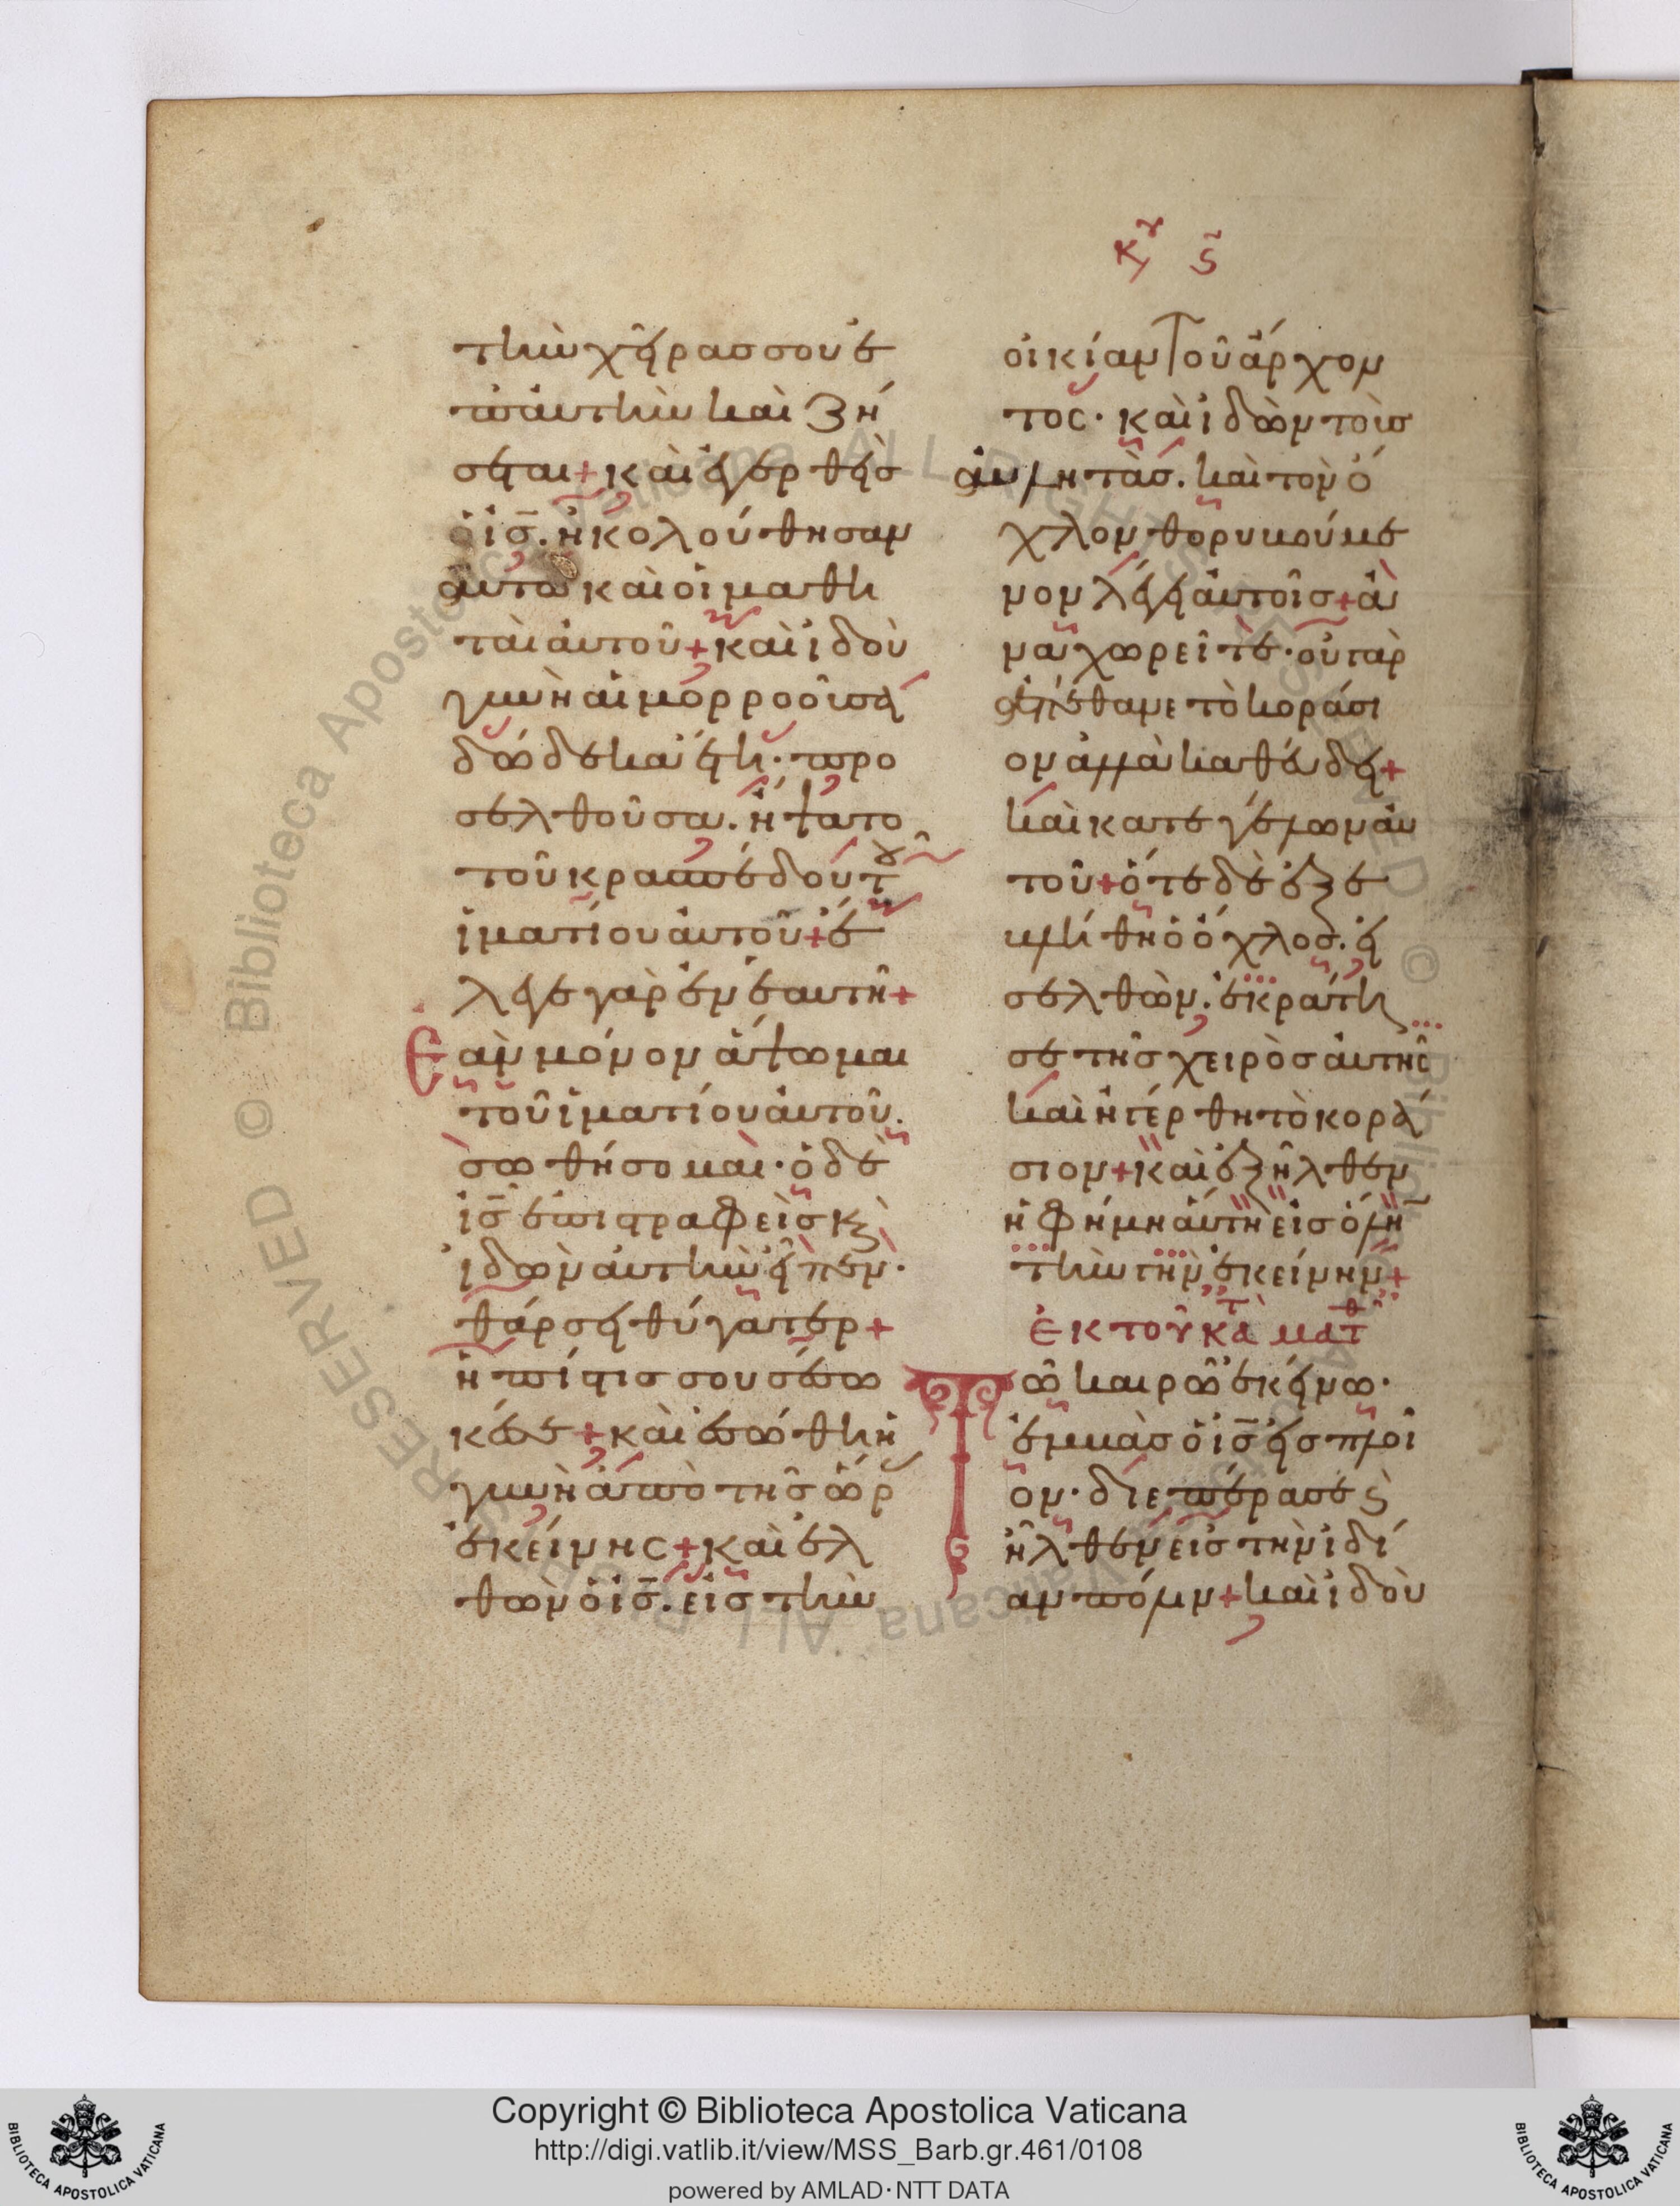 κυ ϛ
τὴν χεῖρα σου ἐ
π' αὐτὴν καὶ ζή
σεται + καὶ ἐγερθεὶς
ὁ ις̄. ἠκολούθησαν
αὐτῶ καὶ οἱ μαθη
ταὶ αὐτοῦ + καὶ ἰδοὺ
γυνὴ αἱμορροοῦσα
δώδεκα ἔτη. προ
σελθοῦσα. ἥψατο
τοῦ κρασπέδου τ
ἱματίου αὐτοῦ + ἔ
λεγε γὰρ ἐν ἑαυτῆ +
Ἐὰν μόνον ἅψωμαι
τοῦ ἱματίου αὐτοῦ.
σωθήσομαι. ὁ δὲ
ις̄ ἐπιστραφεὶς κ
ἰδὼν αὐτὴν εἶπεν.
θάρσει θύγατερ +
ἡ πίστις σου σέσω
κέ σε + καὶ ἐσώθη ἡ
γυνὴ ἀπὸ τῆς ὥρ
ἐκείνης + καὶ ἐλ
θὼν ὁ ις̄. εἰς τὴν
οἰκίαν τοῦ ἄρχον
τος. καὶ ἰδὼν τοὺς
αὐλητὰς. καὶ τὸν ὄ
χλον θορυβούμε
νον λέγει αὐτοῖς + ἀ
ναχωρεῖτε. οὐ γὰρ
ἀπέθανε τὸ κοράσι
ον ἀλλὰ καθεύδει +
καὶ κατεγέλων αὐ
τοῦ + ὅτε δὲ ἐξε
βλήθη ὁ ὄχλος. εἰ
σελθὼν. ἐκράτη
σε τῆς χειρὸς αὐτῆς
καὶ ἠγέρθη τὸ κορά
σιον + καὶ ἐξῆλθεν
ἡ φήμη αὕτη εἰς ὅλη
τὴν γῆν ἐκείνην +
ἐκ τοῦ κατὰ ματθ
Τῶ καιρῶ ἐκείνω.
ἐμβὰς ὁ ις̄ εἰς πλοῖ
ον. διεπέρασε ϛ
ἦλθεν εἰς τὴν ἰδί
αν πόλιν + καὶ ἰδοὺ
Copyright © Biblioteca Apostolica Vaticana
http://digi.vatlib.it/view/MSS_Barb.gr.461/0108
powered by AMLAD·NTT DATA